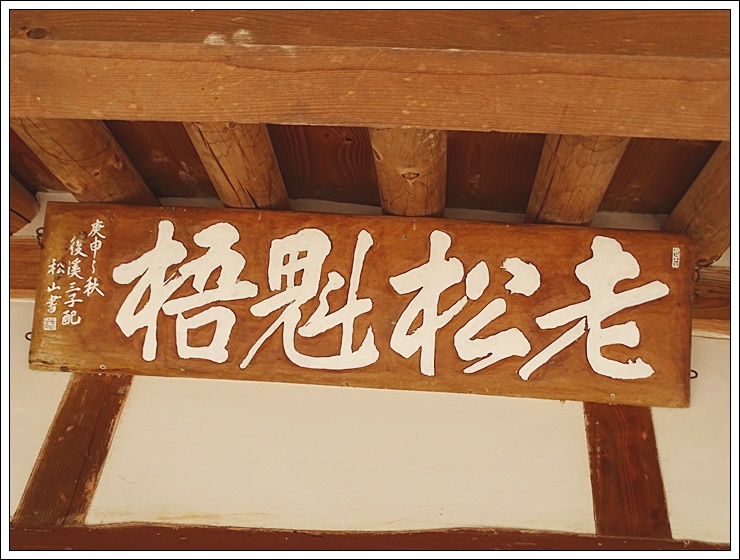 老松魁梧
庚申之秋
後溪三子配
松山書